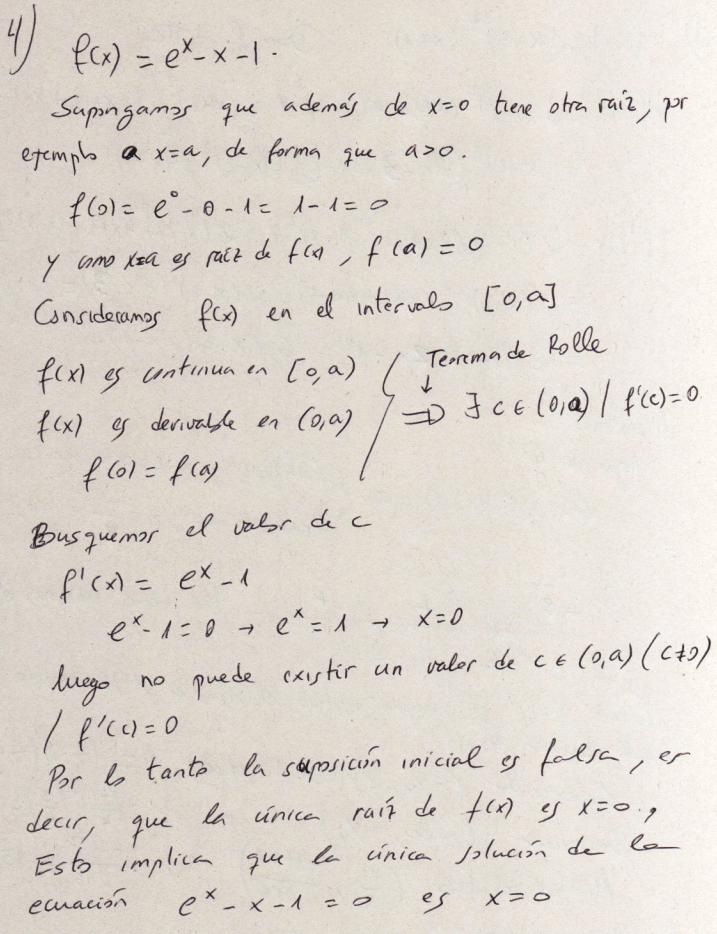 4) f(x) = e^x - x - 1.
Supongamos que además de x=0 tiene otra raíz, por
ejemplo a x=a, de forma que a>0.
f(0) = e^0 - 0 - 1 = 1 - 1 = 0
Y como x=a es raíz de f(x), f(a) = 0
Consideramos f(x) en el intervalo [0,a]
f(x) es continua en [0,a)
f(x) es derivable en (0,a)
f(0) = f(a)
Teorema de Rolle
↓
⇒ ∃ c ∈ (0,a) / f'(c)=0
Busquemos el valor de c
f'(x) = e^x - 1
e^x - 1 = 0 → e^x = 1 → x=0
luego no puede existir un valor de c ∈ (0,a) (c≠0)
/ f'(c) = 0
Por lo tanto la suposición inicial es falsa, es
decir, que la única raíz de f(x) es x=0.,
Esto implica que la única solución de la
ecuación e^x - x - 1 = 0 es x=0